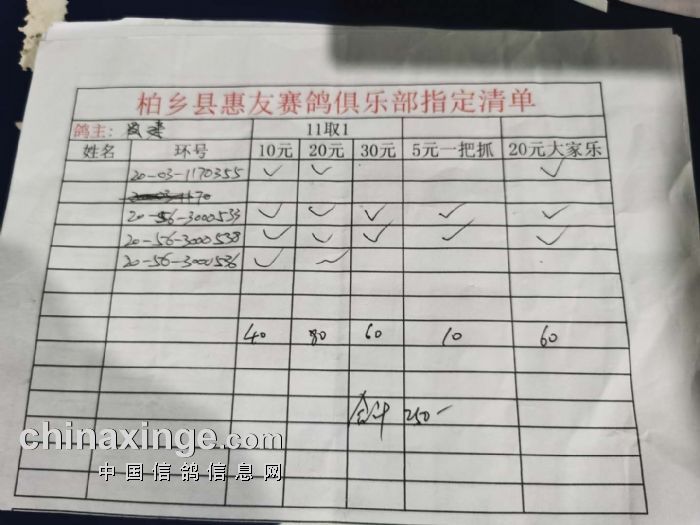 柏乡县惠友赛鸽俱乐部指定清单
鸽主: 11取1
姓名 环号 10元 20元 30元 5元一把抓 20元大家乐
20-03-1170355 ✓ ✓ ✓
20-03-1170
20-56-3000533 ✓ ✓ ✓ ✓ ✓
20-56-3000538 ✓ ✓ ✓ ✓ ✓
20-56-3000536 ✓ ✓
40 80 60 10 60
合计 250-
chinaxinge.com
中国信鸽信息网